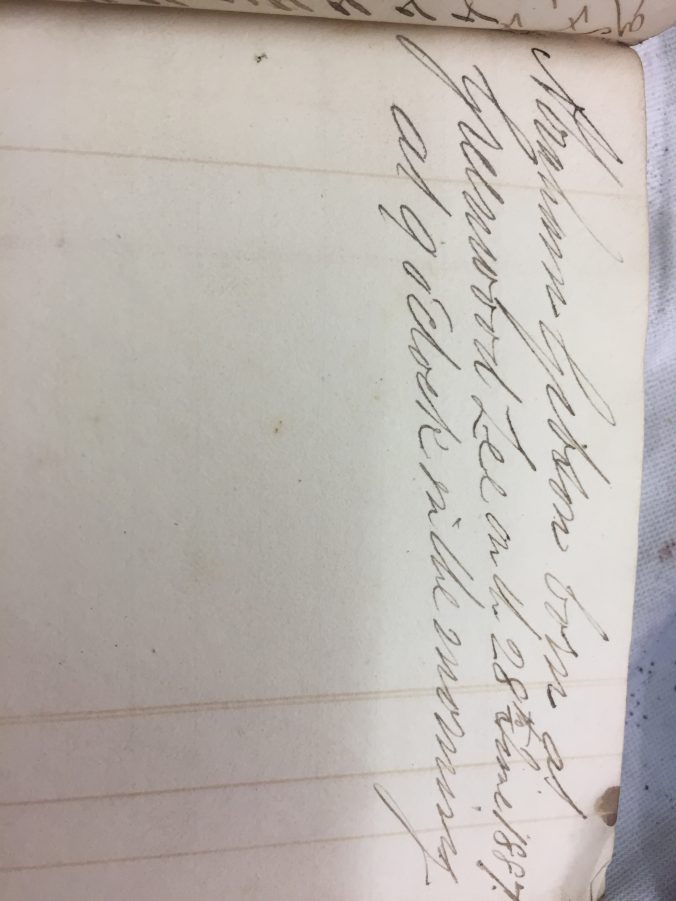 Abraham Gibson born at
Greenwood Lee on th 28th June 1887
at 9 o'clock in the morning